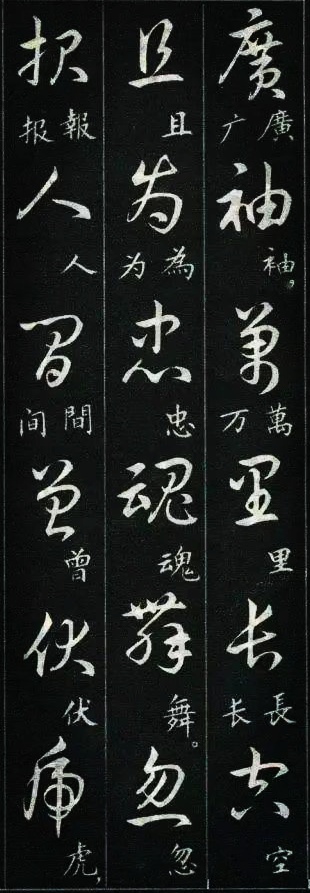 廣 廣广 袖 袖。 萬 萬万 里 里 长 長长 空 空
且 且 为 為为 忠 忠 魂 魂 舞 舞。 忽 忽
报 報报 人 人 间 間间 曾 曾 伏 伏 虎 虎，